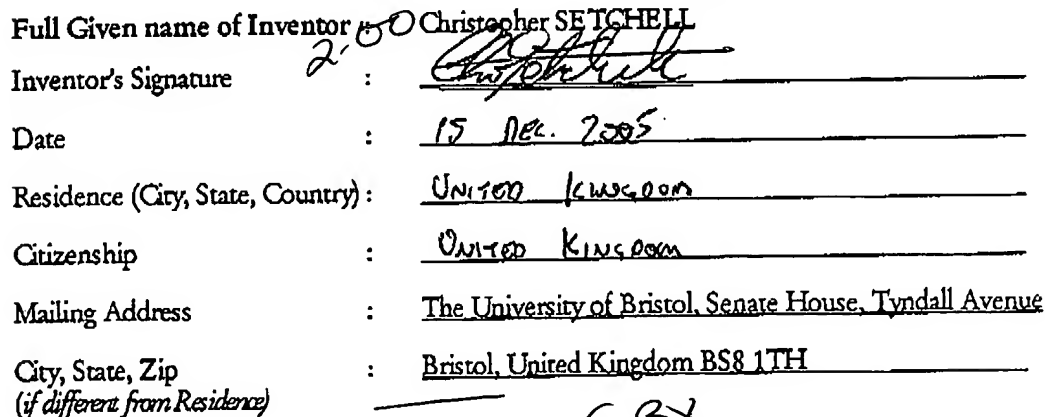 Full Given name of Inventor : Christopher SETCHELL
2-00
Inventor's Signature :
Date : 15 Dec. 2005
Residence (City, State, Country) : UNITED KINGDOM
Citizenship : UNITED KINGDOM
Mailing Address : The University of Bristol, Senate House, Tyndall Avenue
City, State, Zip : Bristol, United Kingdom BS8 1TH
(if different from Residence)